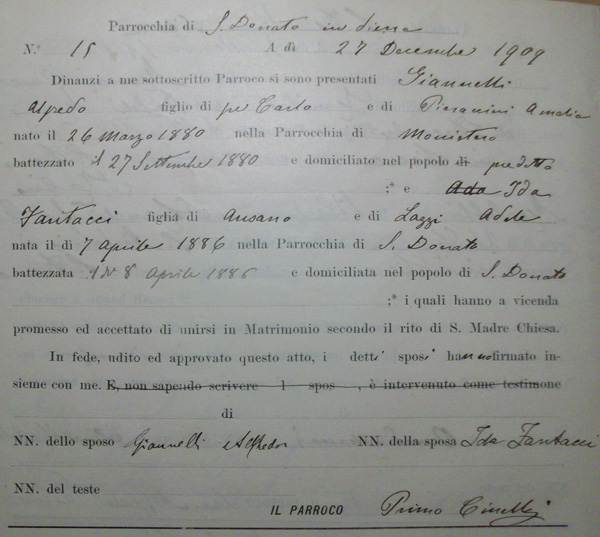 Parrocchia di S. Donato in
N.º 15 A dì 27 Decembre 1909
Dinanzi a me sottoscritto Parroco si sono presentati Giannelli
Alfredo figlio di Carlo e di Pieranini Amalia
nato il 26 Marzo 1880 nella Parrocchia di Monistero
battezzato il 27 Settembre 1880 e domiciliato nel popolo di predetto
;* e Ada Ida
Fantacci figlia di Ansano e di Lazzi Adele
nata il dì 7 Aprile 1886 nella Parrocchia di S. Donato
battezzata 8 Aprile 1886 e domiciliata nel popolo di S. Donato
;* i quali hanno a vicenda
promesso ed accettato di unirsi in Matrimonio secondo il rito di S. Madre Chiesa.
In fede, udito ed approvato questo atto, i detti sposi hanno firmato in-
sieme con me. E, non sapendo scrivere l spos , è intervenuto come testimone
di
NN. dello sposo Giannelli Alfredo NN. della sposa Ida Fantacci
NN. del teste
IL PARROCO Primo Cinelli